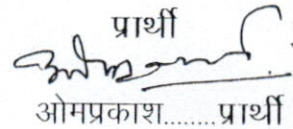 प्रार्थी
ओमप्रकाश........प्रार्थी